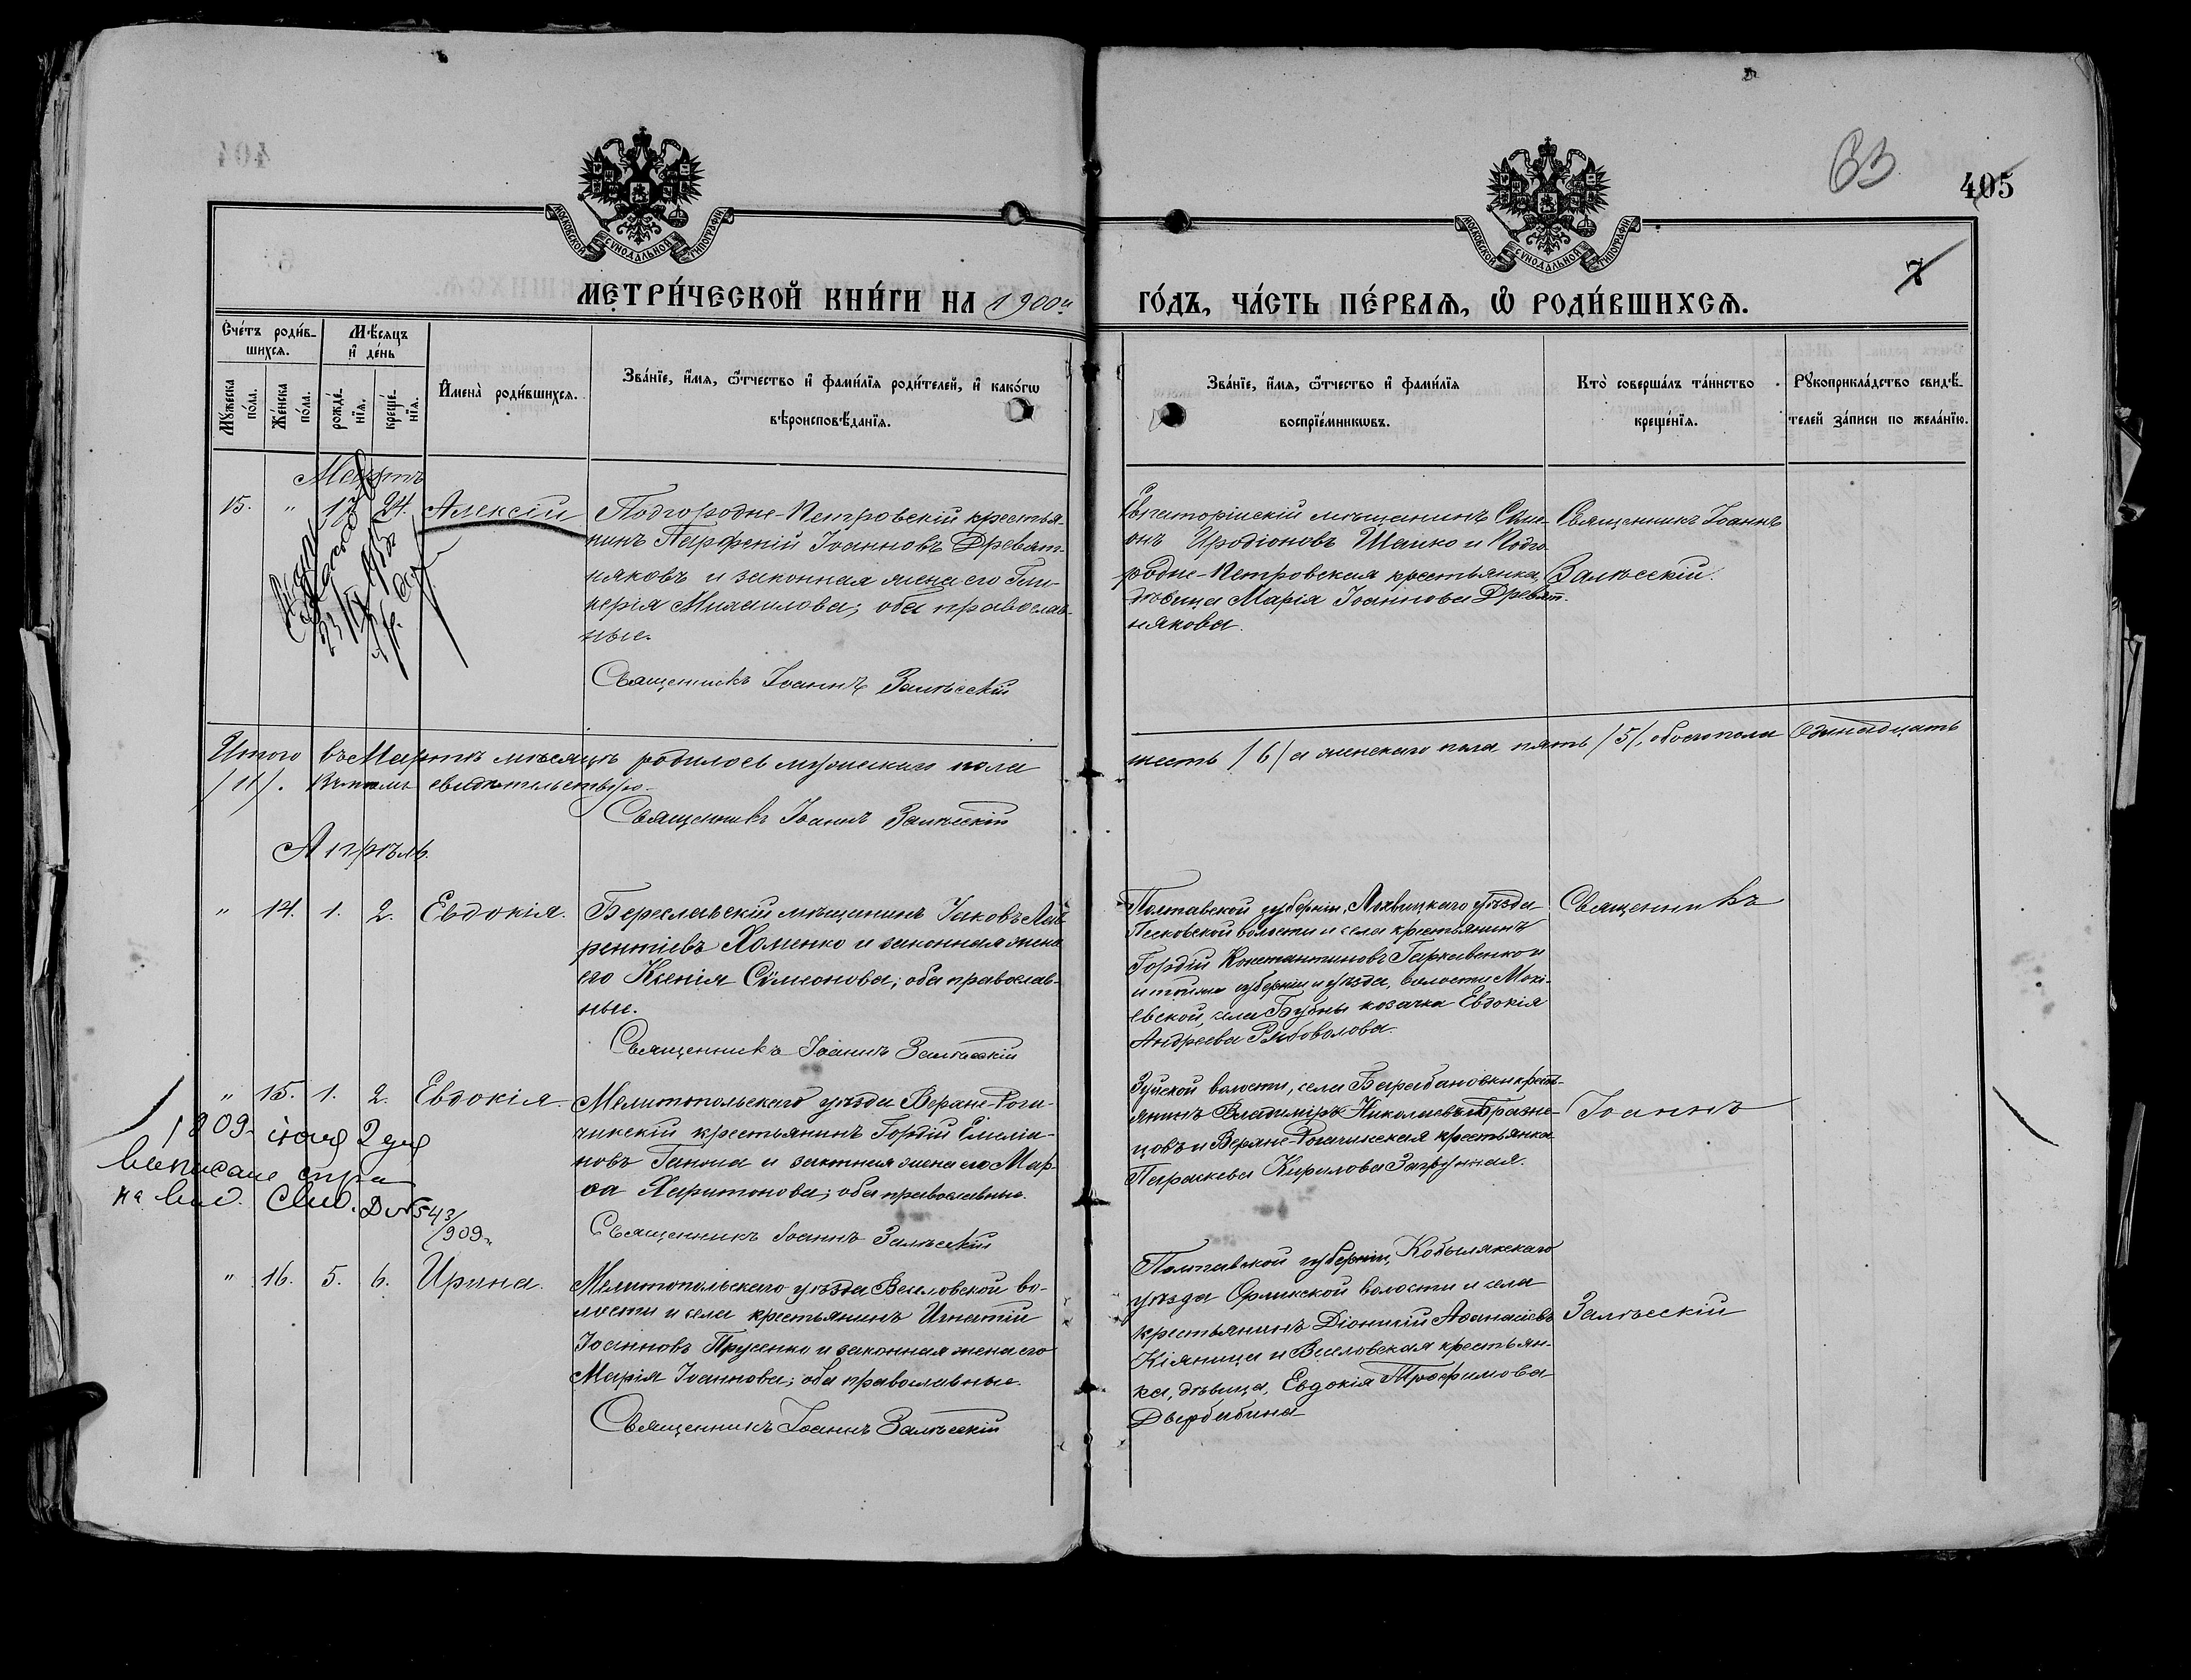 63
405
7
МОСКОВСКОЙ СѴНОДАЛЬНОЙ ТИПОГРАФІИ
МОСКОВСКОЙ СѴНОДАЛЬНОЙ ТИПОГРАФІИ
МЕТРИ́ЧЕСКОЙ КНИ́ГИ НА 1900й
ГО́ДЪ, ЧА́СТЬ ПЕ́РВАѦ, Ѡ҆ РОДИ́ВШИХСѦ.
Сче́тъ роди́в-
шихсѧ.
Мѣ́сѧцъ
и҆ де́нь
Мꙋ́жеска
по́ла.
Же́нска
по́ла.
рожде́-
нїѧ.
креще́-
нїѧ.
И҆мена̀ роди́вшихсѧ.
Зва́нїе, и҆́мѧ, ѻ҆́тчество и҆ фами́лїѧ роди́телей, и҆ како́гѡ
вѣроисповѣ́данїѧ.
Зва́нїе, и҆́мѧ, ѻ҆́тчество и҆ фами́лїѧ
воспрїе́мникѡвъ.
Кто̀ соверша́лъ та́инство
креще́нїѧ.
Рꙋкоприкла́дство свидѣ́-
телей за́писи по жела́нїю.
Мартъ
15. " 17 24. Алексій
Подгородне-Петровскій крестья-
нинъ Парфеній Іоанновъ Древят-
няковъ и законная жена его Гли-
керія Михаилова; оба православ-
ные.
Священникъ Іоаннъ Залѣсскій
Евпаторійскій мѣщанинъ Сим-
онъ Иродіоновъ Шайко и Подго-
родне-Петровская крестьянка,
дѣвица Марія Іоаннова Древят-
някова.
Священникъ Іоаннъ
Залѣсскій.
Итого въ Мартѣ мѣсяцѣ родилось мужескаго пола
шесть /6/ а женскаго пола пять /5/, обоего пола одинадцать
/11/. Въ томъ свидѣтельствую
Священникъ Іоаннъ Залѣсскій
Апрѣль.
" 14. 1. 2. Евдокія.
Бериславскій мѣщанинъ Іаковъ Лав-
рентіевъ Хоменко и законная жена
его Ксенія Сѵмеонова; оба православ-
ные.
Священникъ Іоаннъ Залѣсскій
Полтавской губерніи, Лохвицкаго уѣзда
Песковской волости и села крестьянинъ
Гордій Константиновъ Гаркавенко и
и той же губерніи и уѣзда, волости Мокі-
евской, села Бубны козачка Евдокія
Андреева Рыбоволова.
Священникъ
" 15. 1. 2. Евдокія.
Мелитопольскаго уѣзда Верхне-Рога-
чикскій крестьянинъ Гордій Емилія-
новъ Ганжа и законная жена его Мар-
ѳа Харитонова; оба православные.
Священникъ Іоаннъ Залѣсскій
Зуйской волости, села Барабановки кресть-
янинъ Владиміръ Николаевъ Бразне-
цовъ и Верхне-Рогачикская крестьянка
Параскева Кирилова Загрунная.
Іоаннъ
1909 іюля 2 дня
на
Д №543/909
" 16. 5. 6. Ирина.
Мелитопольскаго уѣзда Веселовской во-
лости и села крестьянинъ Игнатій
Іоанновъ Прусенко и законная жена его
Марія Іоаннова; оба православные.
Священникъ Іоаннъ Залѣсскій
Полтавской губерніи, Кобылякскаго
уѣзда Орликской волости и села
крестьянинъ Діонисій Аѳанасіевъ
Кіяница и Веселовская крестьян-
ка, дѣвица, Евдокія Трофимова
Дверабина
Залѣсскій